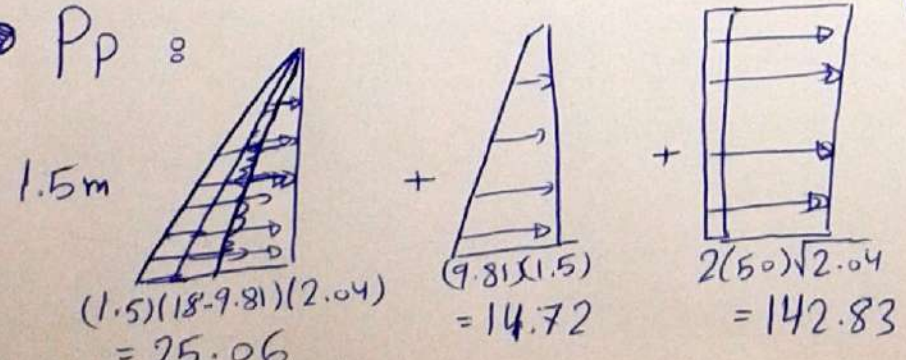 Pp :
1.5m
+
+
(1.5)(18-9.81)(2.04)
= 25.06
(9.81)(1.5)
= 14.72
2(50)√2.04
= 142.83